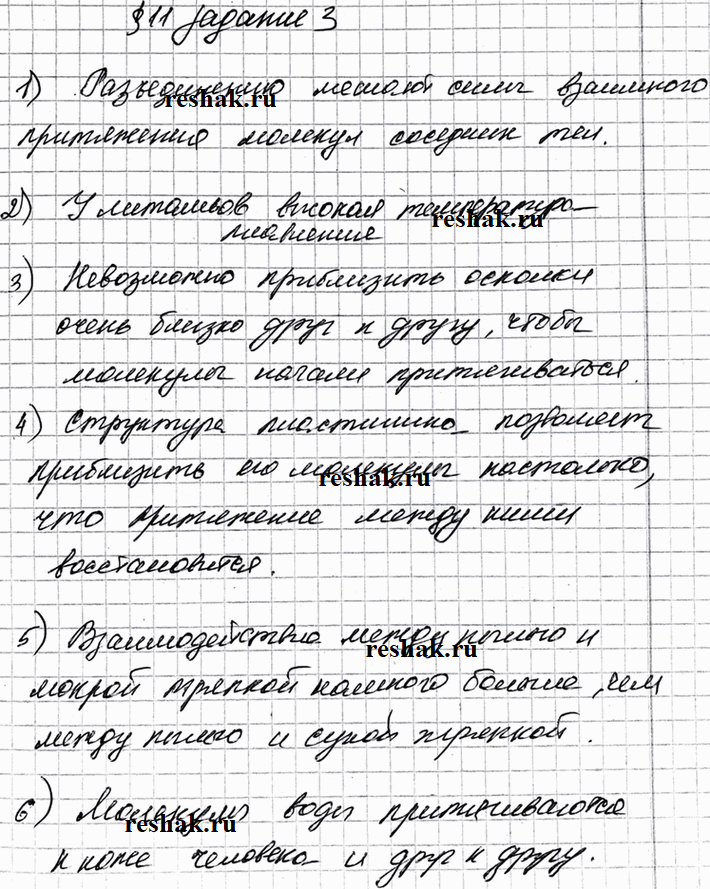 §11 Задание 3
1) Разъединению мешают силы взаимного
reshak.ru
притяжения молекул соседних тел.
2) У металлов высокая температура
reshak.ru
плавления
3) Невозможно приблизить осколки
очень близко друг к другу, чтобы
молекулы начали притягиваться.
4) Структура пластилина позволяет
приблизить его молекулы настолько,
reshak.ru
что притяжение между ними
восстановится.
5) Взаимодействие между пылью и
reshak.ru
мокрой тряпкой намного больше, чем
между пылью и сухой тряпкой.
6) Молекулы воды притягиваются
reshak.ru
к коже человека и друг к другу.